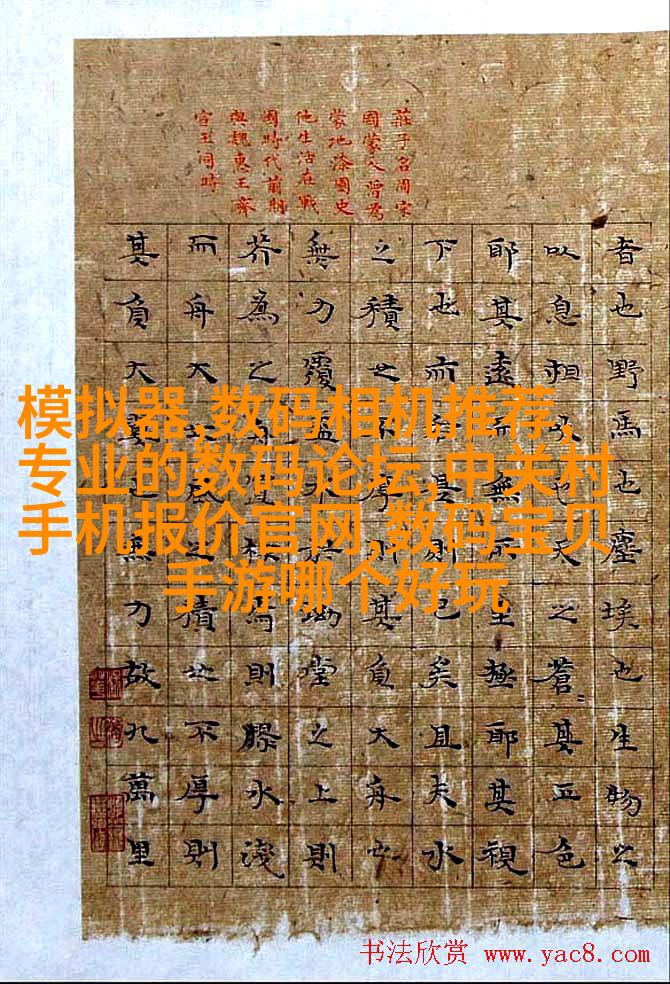 莊子名周宋
國蒙人曾為
蒙地漆園史
他生活在戰
國時代前期
與魏惠王齊
宣王同時
者也野馬也塵埃也生物之
以息相吹也天之蒼〻其正色
耶其遠而無所至極耶其視
下也而若是則已矣且夫水
之積也不厚則其負大舟也
無力覆盃水於坳堂之上則
芥為之舟置杯焉則膠水淺
而舟大也風之積也不厚則
其負大翼也無力故九萬里
模拟器,数码相机推荐,
专业的数码论坛,中关村
手机报价官网,数码宝贝
手游哪个好玩
书法欣赏 www.yac8.com